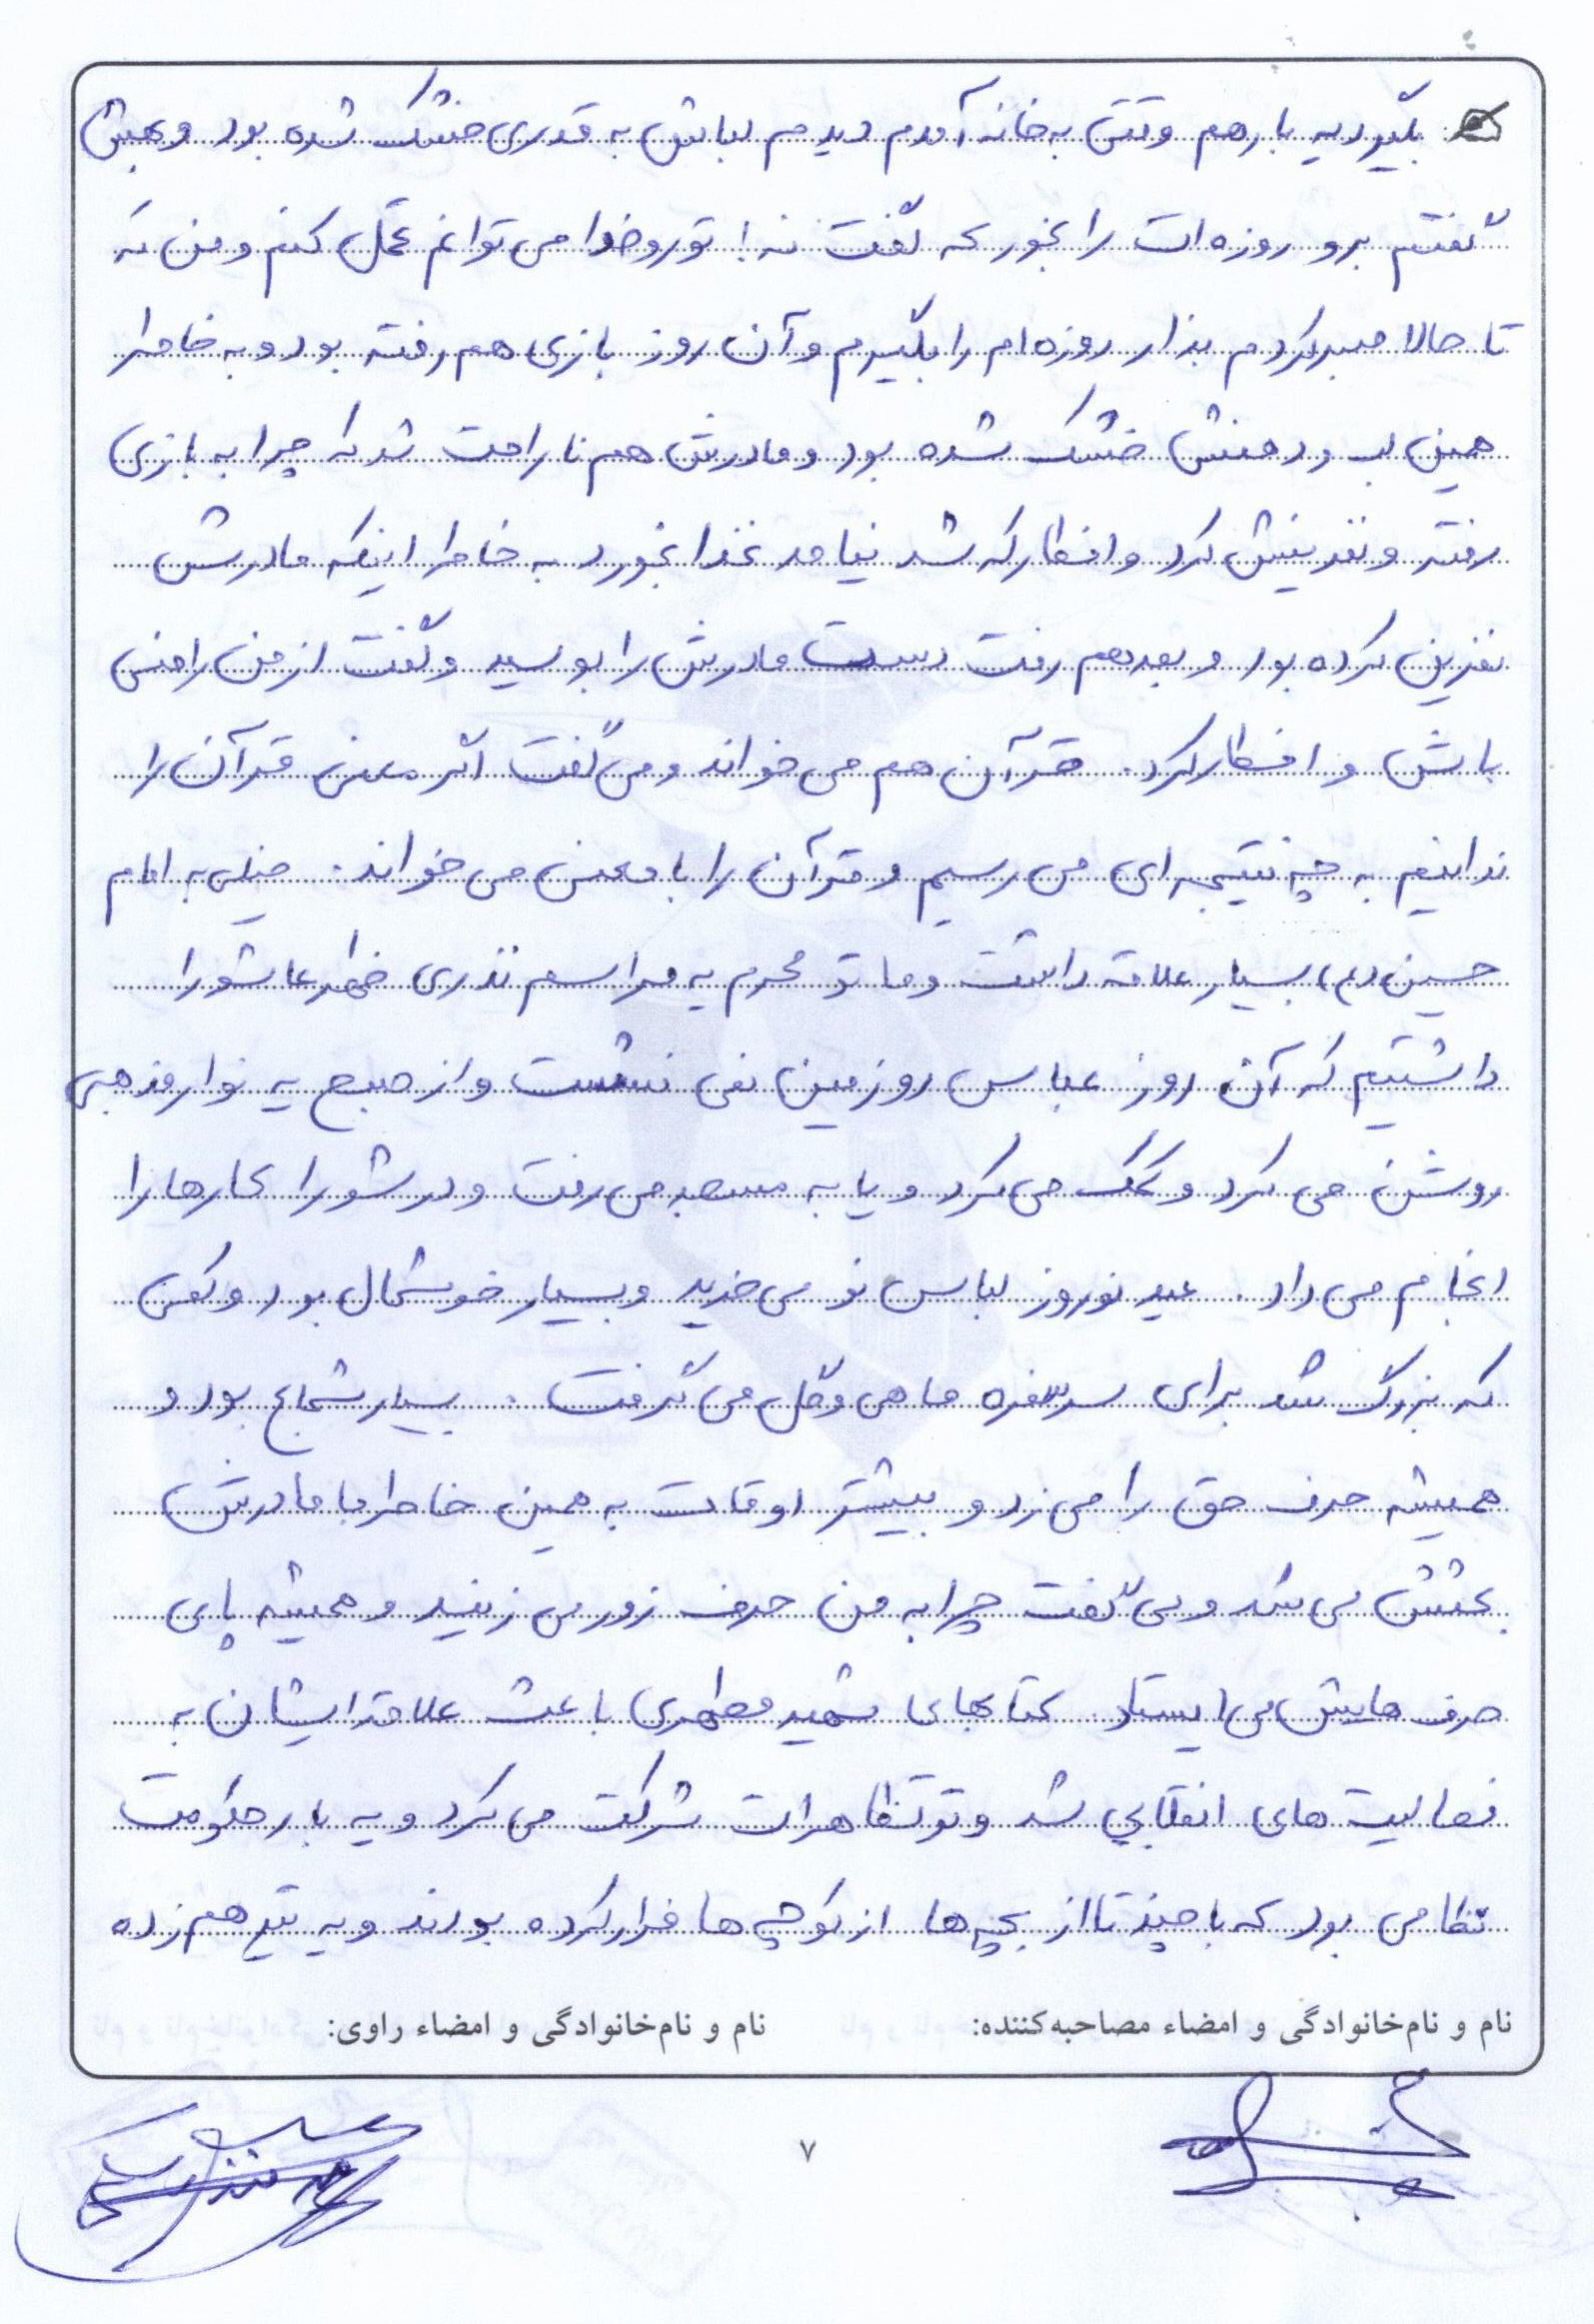 بگیرد یه بار هم وقتی به خانه آمدم دیدم لباش به قدری خشک شده بود و بهش
گفتم برو روزه ات را بخور که گفت نه! تورو خدا می توانم تحمل کنم و من که
تا حالا صبر کردم بذار روزه ام را بگیرم و آن روز بازی هم رفته بود و به خاطر
همین لب و دهنش خشک شده بود و مادرش هم ناراحت شد که چرا به بازی
رفته و نفرینش کرد و افطار که شد نیامد غذا بخورد به خاطر اینکه مادرش
نفرین کرده بود و بعد هم رفت دست مادرش را بوسید و گفت از من راضی
باش و افطار کرد. قرآن هم می خواند و می گفت اگر معنی قرآن را
ندانیم به چه نتیجه ای می رسیم و قرآن را با معنی می خواند. خیلی به امام
حسین (ع) بسیار علاقه داشت و ما تو محرم یه مراسم نذری ظهر عاشورا
داشتیم که آن روز عباس رو زمین نمی نشست و از صبح یه نوار مذهبی
روشن می کرد و کمک می کرد و یا به مسجد می رفت و در شورا کارها را
انجام می داد. عید نوروز لباس نو می خرید و بسیار خوشحال بود و کمی
که بزرگ شد برای سر سفره ماهی و گل می گرفت. بسیار شجاع بود و
همیشه حرف حق را می زد و بیشتر اوقات به همین خاطر با مادرش
بحثش می شد و می گفت چرا به من حرف زور می زنید و همیشه پای
حرف هایش می ایستاد. کتابهای شهید مطهری باعث علاقه ایشان به
فعالیت های انقلابی شد و تو تظاهرات شرکت می کرد و یه بار حکومت
نظامی بود که با چند تا از بچه ها از کوچه ها فرار کرده بودند و یه تیر هم زده
نام و نام‌خانوادگی و امضاء مصاحبه‌کننده: نام و نام‌خانوادگی و امضاء راوی:
۷